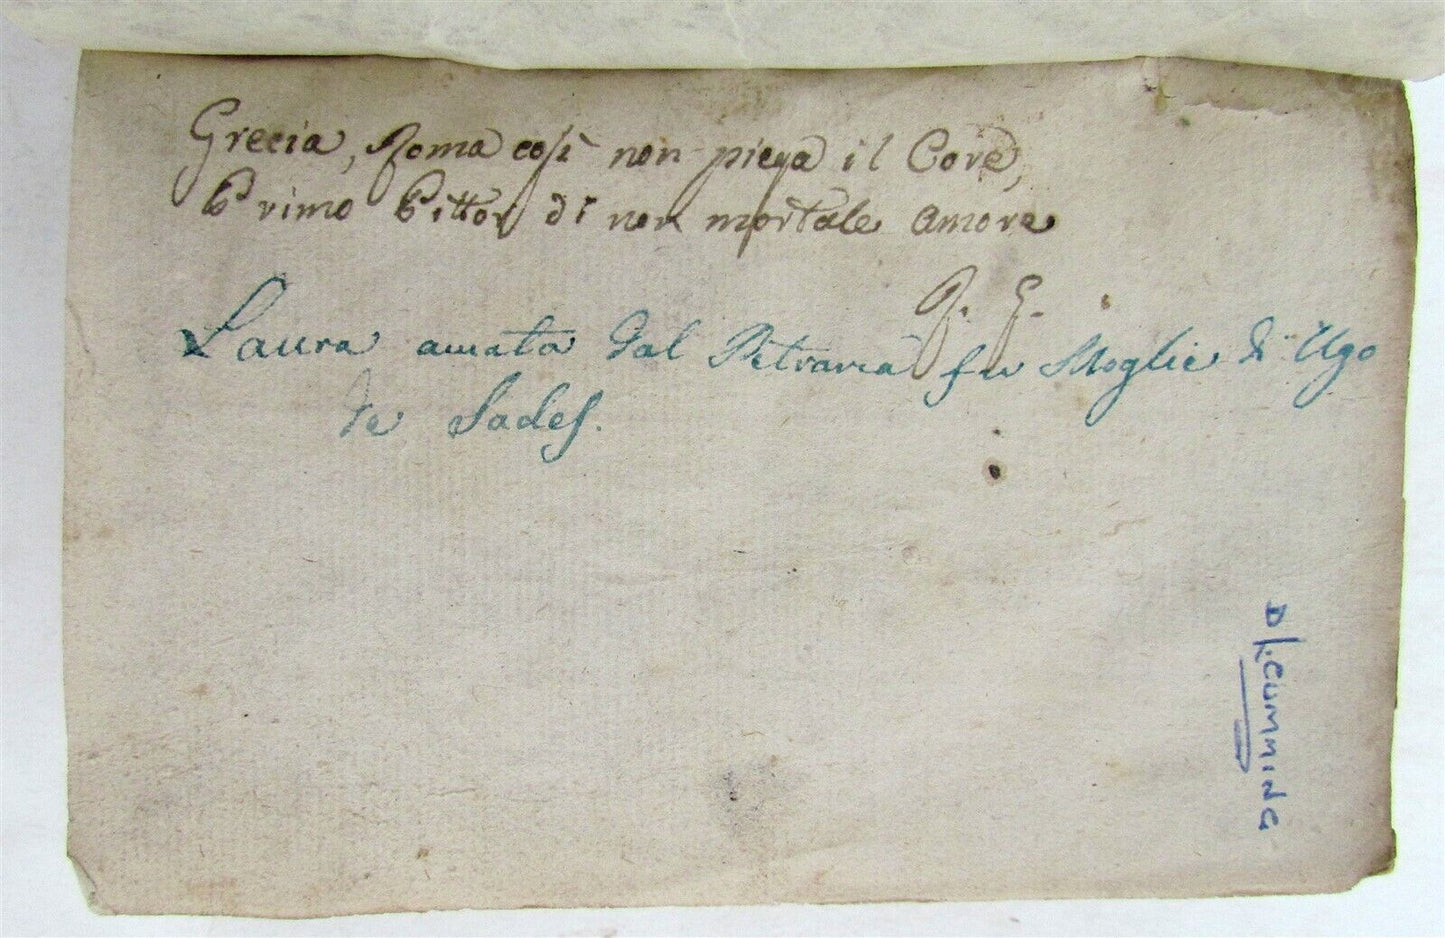 Grecia, Roma così non piega il Core,
Primo Pittor di non mortale amore
P. G.
Laura amata dal Petrarca fu Moglie di Ugo
de Sades.
D K CUMMING